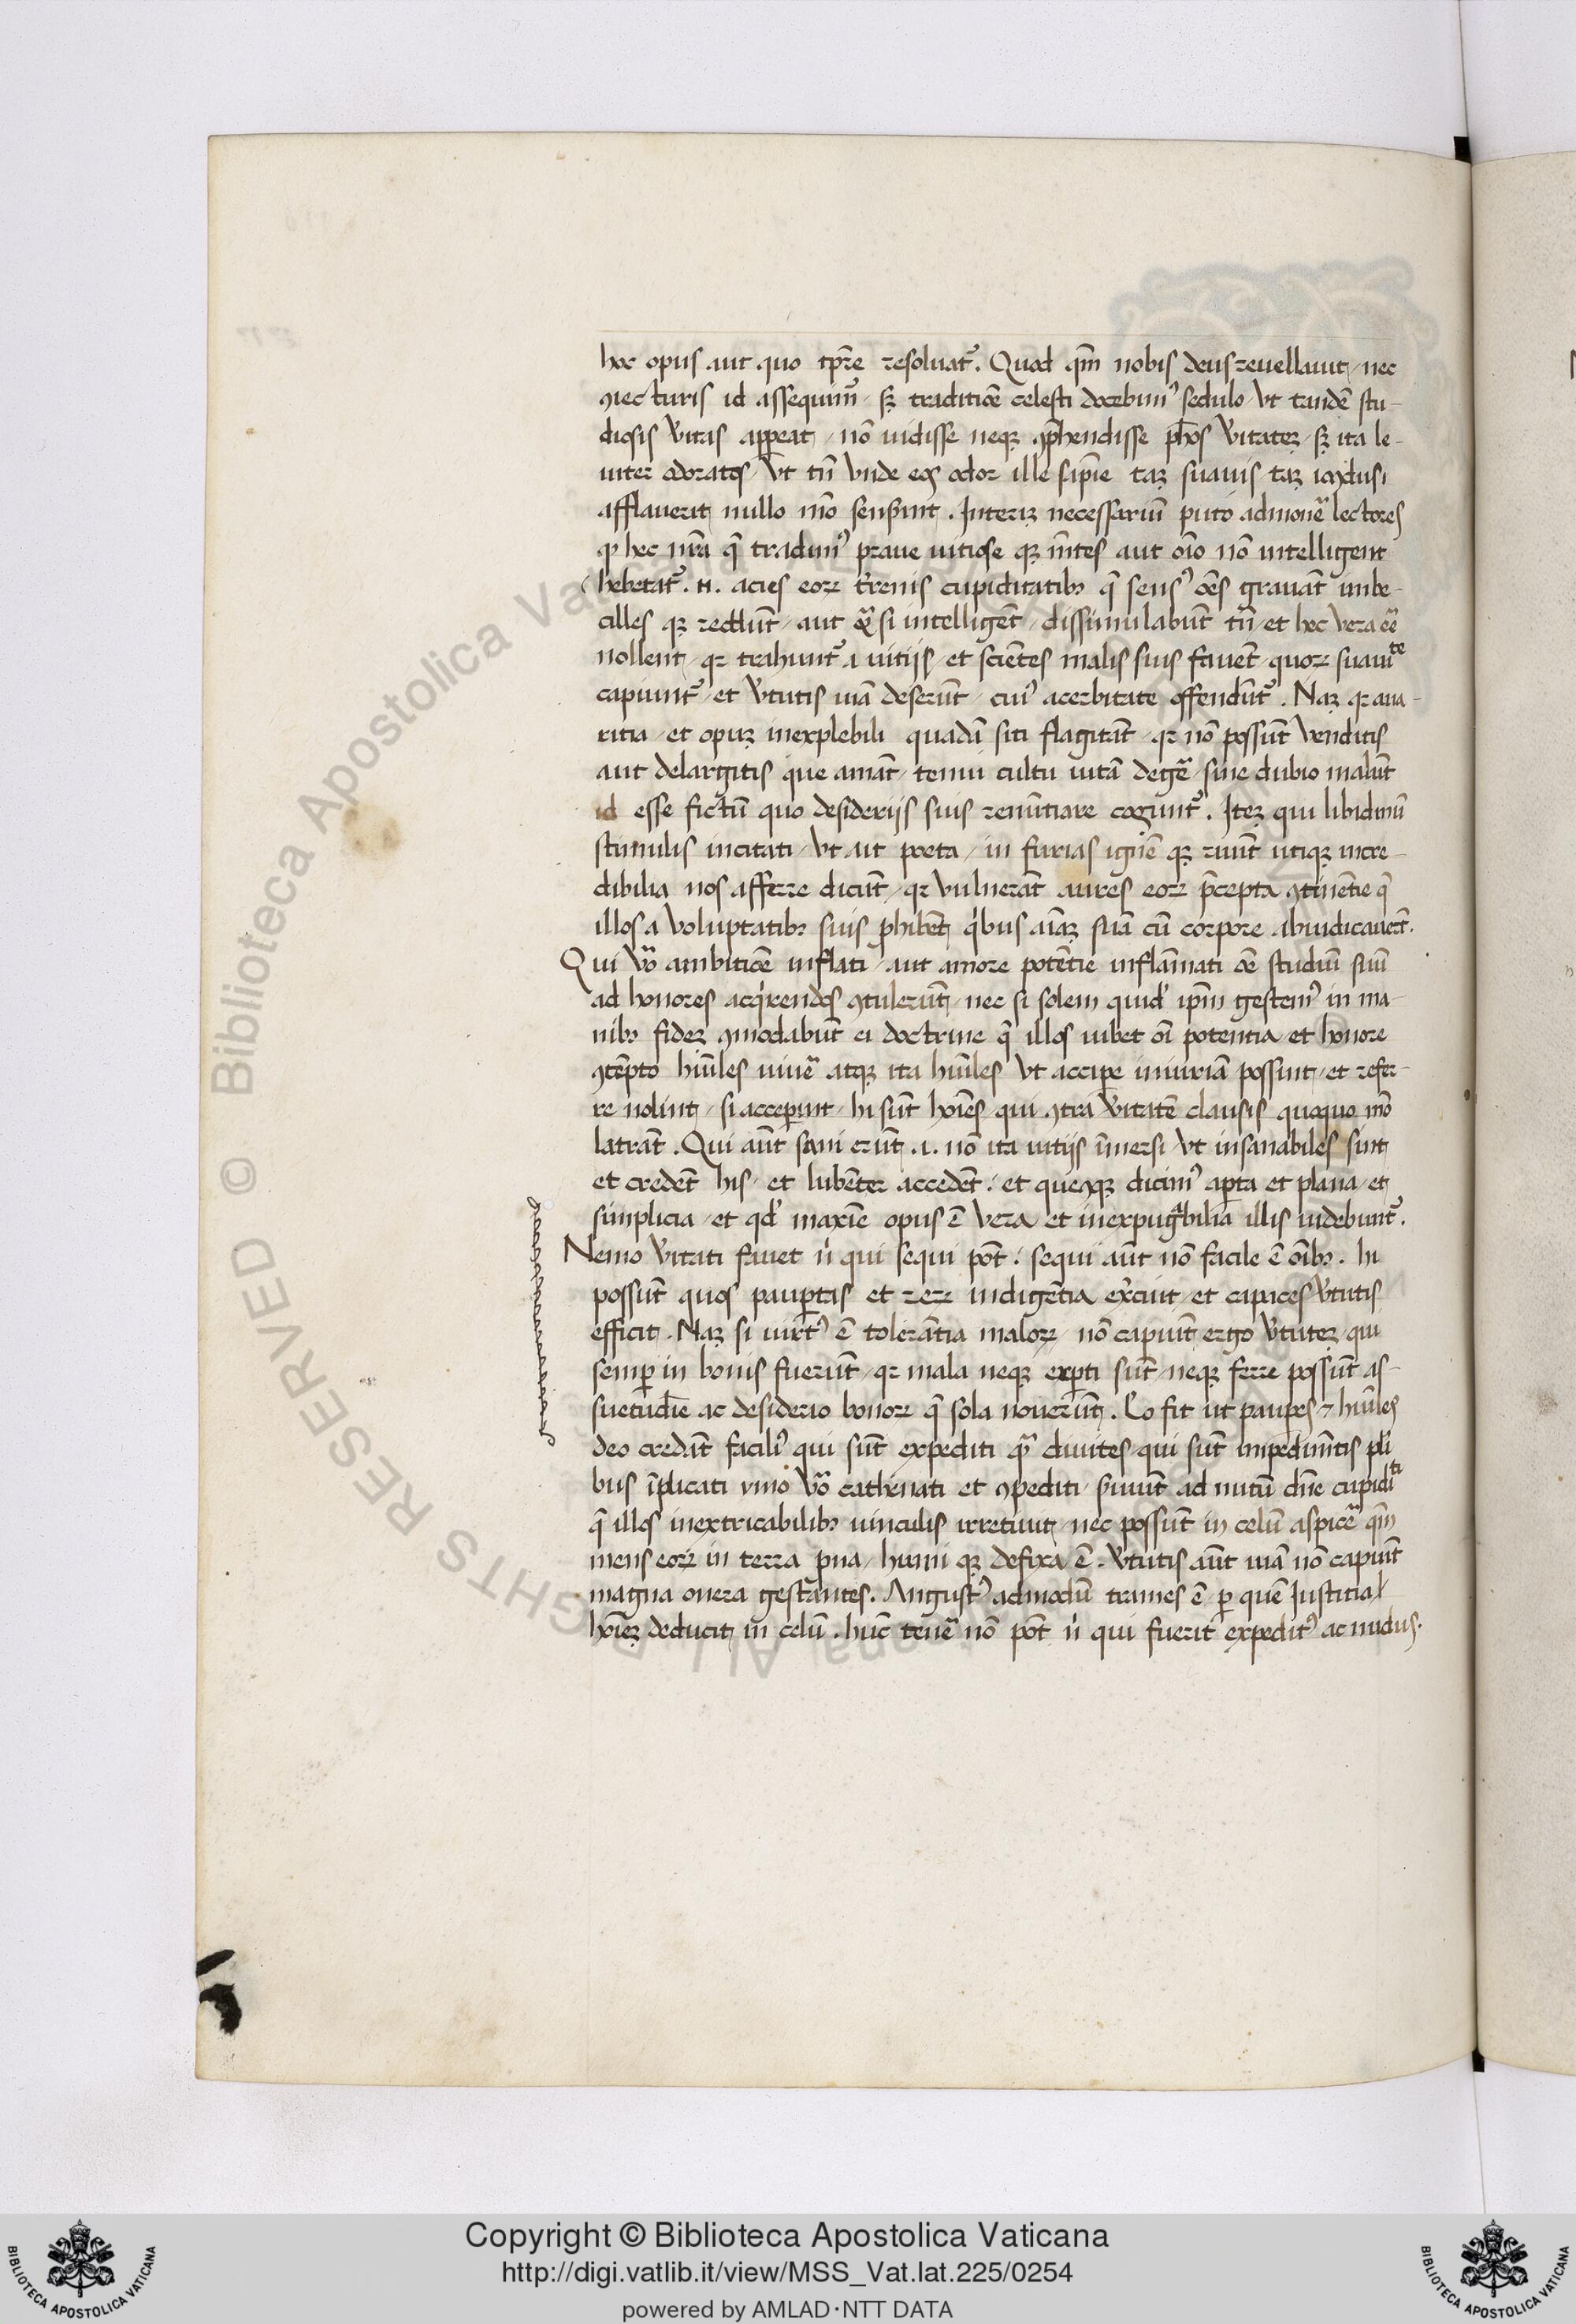 hoc opus aut quo tp̄re resoluat᷑. Quod qm̄ nobis deus reuellauit / nec
ꝯiecturis id assequim᷑ / sꝫ traditiōe celesti docebimꝰ sedulo / vt tandē stu-
diosis v̄itatis appeat / nō uidisse neqꝫ ꝯp̄hendisse ph̄os v̄itateꝫ / sꝫ ita le-
uiter odoratos / vt tn̄ vnde eos odor ille sapīe taꝫ suauis taꝫ
afflauerit nullo mō senserint. Interiꝫ necessariū puto admonē lectores
ꝙ hec nr̄a q̄ tradimꝰ praue uitiose qꝫ mn̄tes aut oīo nō intelligent
hebetat᷑ .n. acies eoꝝ t̄renis cupiditatibꝫ q̄ sensꝰ oēs grauāt imbe-
cilles qꝫ reddūt / aut & si intelligēt / dissimulabūt tn̄ / et hec vera eē
nollent / qꝛ trahunt᷑ a uitijs / et sciētes malis suis fauēt / quoꝝ suauite
capiunt᷑ / et v̄tutis uiā deserūt / cuiꝰ acerbitate offendūt᷑. Naꝫ qꝛ aua-
ritia / et opuꝫ inexplebili quadā siti flagitāt / qꝛ nō possūt venditis
aut delargitis que amāt / tenui cultu uitā degē / sine dubio malūt
id esse fictū quo desiderijs suis renūtiare cogunt᷑. Iteꝫ qui libidinū
stimulis incitati / vt ait poeta / in furias ignē qꝫ ruūt utiqꝫ incre-
dibilia nos afferre dicūt / qꝛ vulnerāt aures eoꝝ p̄cepta ꝯtinētie q̄
illos a voluptatibꝫ suis phibēt qͥbus aīaꝫ suā cū corpore abiudicauert̄.
Qui vō ambitiōe inflati / aut amore potētie inflāmati oē studiū suū
ad honores acqͥrendos ꝯtulerūt / nec si solem quid᷑ ipm̄ gestemꝰ in ma-
nibꝫ fideꝫ ꝯmodabūt ei doctrine q̄ illos iubet oī potentia et honore
ꝯtēpto hūiles uiuē atqꝫ ita hūiles vt accipe iniuriā possint / et refer-
re nolint / si acceperint / hi sūt hoīes qui ꝯtra v̄itatē clausis quoquo mō
latrāt. Qui aūt sani erūt .i. nō ita uitijs īmersi vt insanabiles sint
et credēt his / et lubēter accedēt : et queꝯqꝫ dicimꝰ apta et plana / et
simplicia / et qd᷑ maxīe opus ē vera et inexpugᵃbilia illis uidebunt᷑.
Nemo v̄itati fauet n̄ qui sequi pōt : sequi aūt nō facile ē oībꝫ. hi
possūt quos paupertas et reꝝ indigētia excuit / et capaces v̄tutis
efficit. Naꝫ si uirtꝰ ē tolerātia maloꝝ / nō capiūt ergo v̄tuteꝫ / qui
semper in bonis fuerūt / qꝛ mala neqꝫ experti sūt / neqꝫ ferre possūt as-
suetudīe ac desiderio bonoꝝ q̄ sola nouerūt. Eo fit ut pauperes ⁊ hūiles
deo credāt faciliꝰ qui sūt expediti qͣ diuites / qui sūt impedimn̄tis pli
bus īplicati ymo vō cathenati et ꝯpediti suiūt ad nutū dn̄e cupiditi
q̄ illos inextricabilibꝫ uinculis irretiuit / nec possūt in celū aspicē qm̄
mens eoꝝ in terra prona / humi qꝫ defixa ē. v̄tutis aūt uiā nō capiūt
magna onera gestantes. Angustꝰ admodū trames ē / per quē Iustitia
hoīeꝫ deducit in celū. hūc tenē nō pōt n̄ qui fuerit expeditꝰ ac nudus.
Copyright © Biblioteca Apostolica Vaticana
http://digi.vatlib.it/view/MSS_Vat.lat.225/0254
powered by AMLAD·NTT DATA
BIBLIOTECA APOSTOLICA VATICANA
BIBLIOTECA APOSTOLICA VATICANA